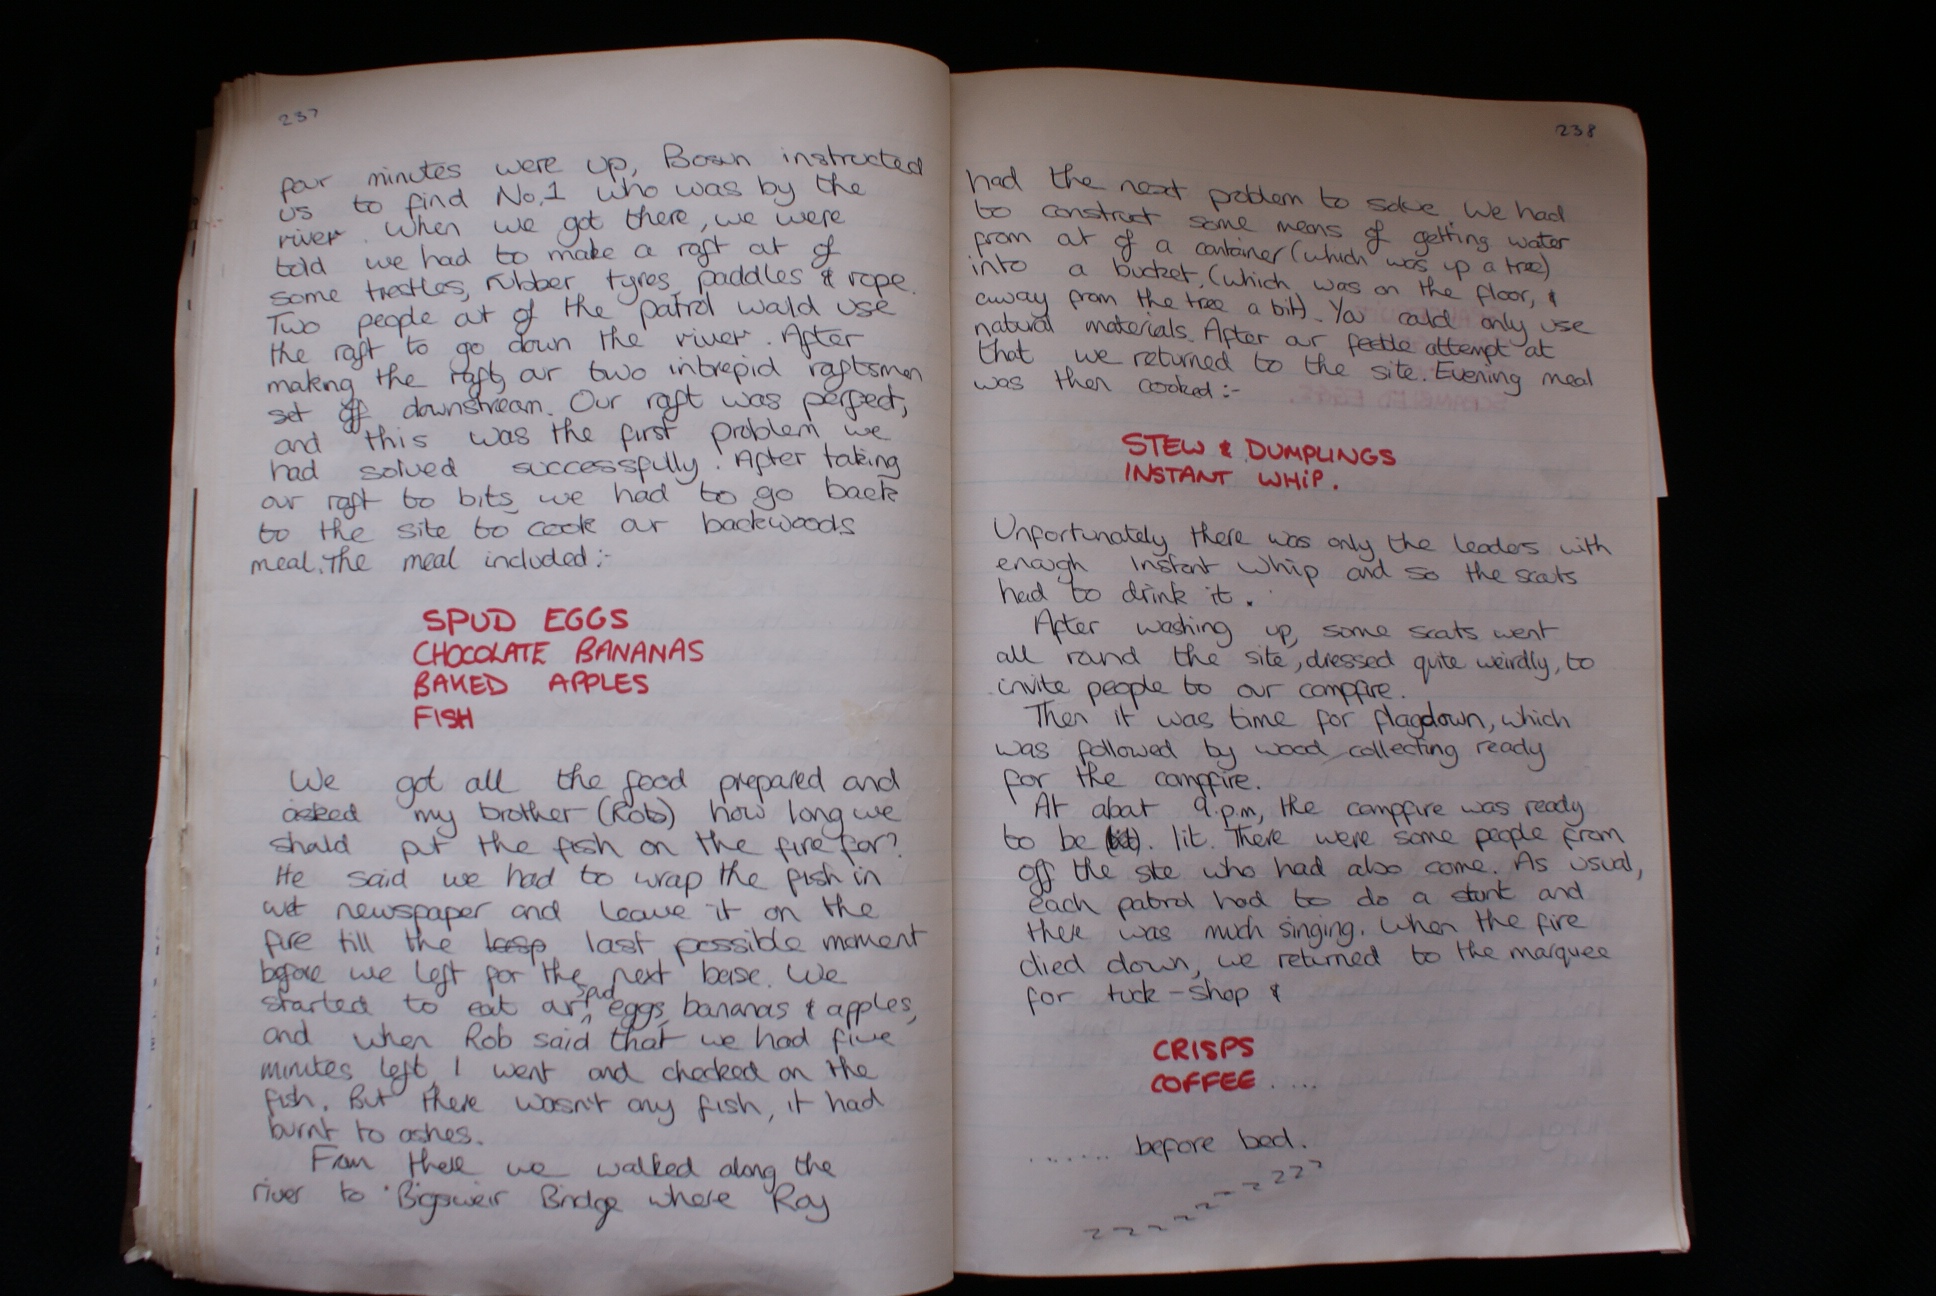 237
four minutes were up, Bosun instructed
us to find No.1 who was by the
river. When we got there, we were
told we had to make a raft out of
some trestles, rubber tyres, paddles & rope.
Two people out of the patrol would use
the raft to go down the river. After
making the raft, our two intrepid raftsmen
set off downstream. Our raft was perfect,
and this was the first problem we
had solved successfully. After taking
our raft to bits, we had to go back
to the site to cook our backwoods
meal. The meal included:-
SPUD EGGS
CHOCOLATE BANANAS
BAKED APPLES
FISH
We got all the food prepared and
asked my brother (Rob) how long we
should put the fish on the fire for?
He said we had to wrap the fish in
wet newspaper and leave it on the
fire till the last possible moment
before we left for the next base. We
started to eat our spud eggs, bananas & apples,
and when Rob said that we had five
minutes left, I went and checked on the
fish. But there wasn't any fish, it had
burnt to ashes.
From there we walked along the
river to Bigsweir Bridge where Roy
238
had the next problem to solve. We had
to construct some means of getting water
from out of a container (which was up a tree)
into a bucket, (which was on the floor, &
away from the tree a bit). You could only use
natural materials. After our feeble attempt at
that we returned to the site. Evening meal
was then cooked:-
STEW & DUMPLINGS
INSTANT WHIP.
Unfortunately there was only the leaders with
enough Instant Whip and so the scouts
had to drink it.
After washing up, some scouts went
all round the site, dressed quite weirdly, to
invite people to our campfire.
Then it was time for flagdown, which
was followed by wood collecting ready
for the campfire.
At about 9.p.m, the campfire was ready
to be lit. There were some people from
off the site who had also come. As usual,
each patrol had to do a stunt and
there was much singing. When the fire
died down, we returned to the marquee
for tuck-shop &
CRISPS
COFFEE .....
....... before bed.
z z z z z z z z z z z